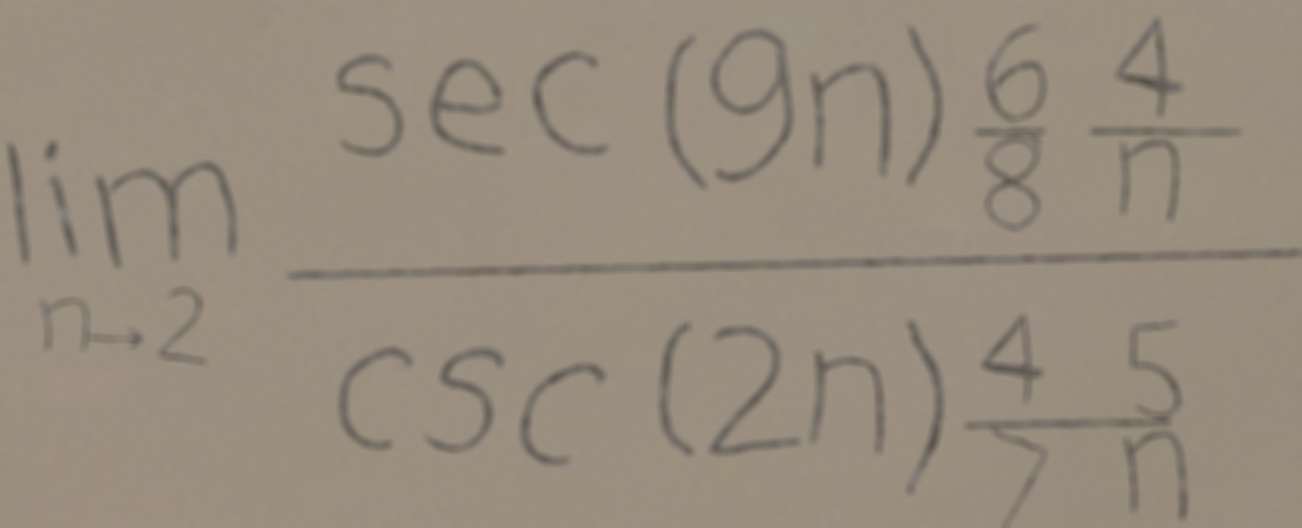 \lim_{n \to 2} \frac{\sec(9n) \frac{6}{8} \frac{4}{n}}{\csc(2n) \frac{4}{7} \frac{5}{n}}